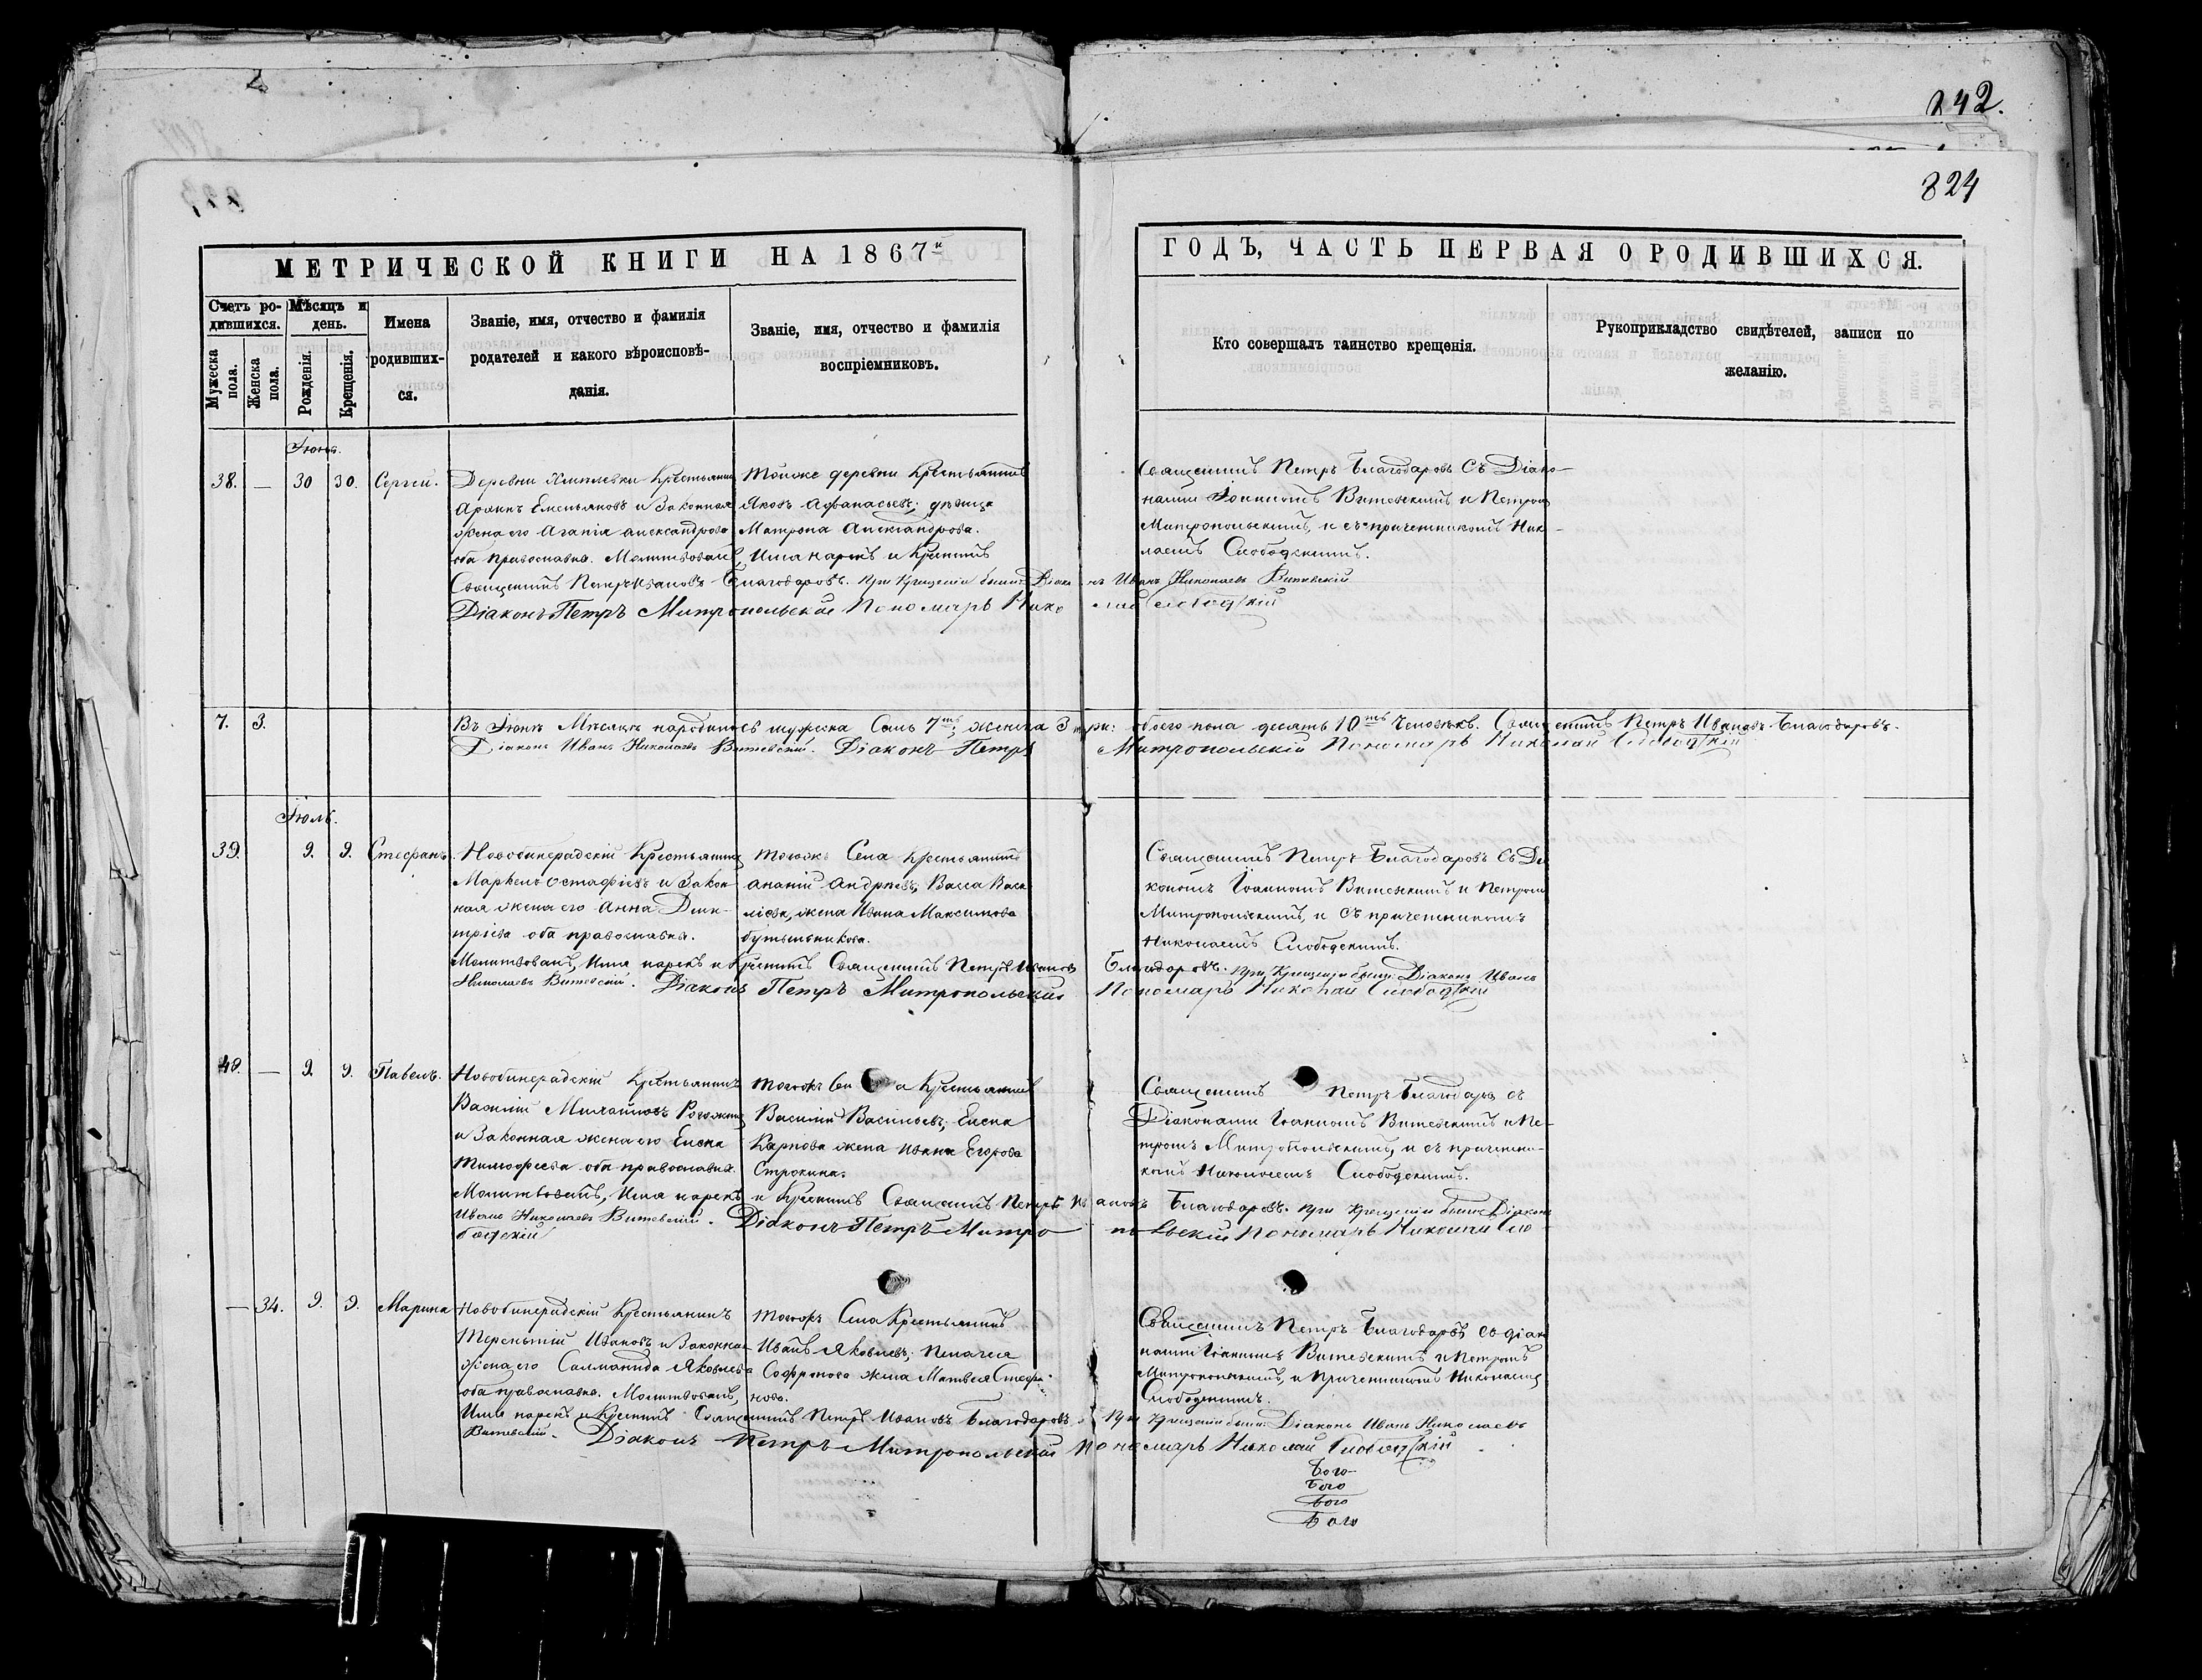 242.
824
МЕТРИЧЕСКОЙ КНИГИ НА 1867й
ГОДЪ, ЧАСТЬ ПЕРВАЯ О РОДИВШИХСЯ.
Счетъ ро-
дившихся.
Мужеска пола.
Женска пола.
Мѣсяцъ и
день.
Рожденія.
Крещенія.
Имена
родивших-
ся.
Званіе, имя, отчество и фамилія
родителей и какого вѣроисповѣ-
данія.
Званіе, имя, отчество и фамилія
воспріемниковъ.
Кто совершалъ таинство крещенія.
Рукоприкладство свидѣтелей, записи по
желанію.
Іюнь.
38. — 30 30. Сергей.
Деревни Крестьянинъ
Емельяновъ и Законная
жена его Агапія Александрова
оба православна. Молитвовалъ,
Тойже деревни Крестьянинъ
Яковъ Афанасьевъ; дѣвица
Матрона Александрова.
Имя нарекъ и Крестилъ
Священникъ Петръ Благодаровъ Съ Діако-
нами Іоанномъ Витевскимъ и Петромъ
Митропольскимъ, и съ причетникомъ Нико-
лаемъ Слободскимъ.
Священникъ Петръ Ивановъ Благодаровъ. При Крещеніи были: Діаконъ Иванъ Николаевъ Витевскій
Діаконъ Петръ Митропольскій Пономарь Николай Слободскій
7. 3. Въ Іюнѣ Мѣсяцѣ народилось мужеска Семь 7мь, женска 3 три: обоего пола десять 10ть Человѣкъ. Священникъ Петръ Ивановъ Благодаровъ.
Діаконъ Иванъ Николаевъ Витевскій. Діаконъ Петръ Митропольскій Пономарь Николай Слободскій
Іюль.
39. 9. 9. Стефанъ.
Новобинарадскій Крестьянинъ
Маркелъ Остафіевъ и Закон-
ная жена его Анна Дими-
тріева оба православна.
Тогожъ Села Крестьянинъ
Ананій Андреевъ; Васса Васи-
ліева, жена Ивана Максимова
Бутыльникова.
Священникъ Петръ Благодаровъ Съ Діа-
кономъ Іоанномъ Витевскимъ и Петромъ
Митропольскимъ, и Съ причетникомъ
Николаемъ Слободскимъ.
Молитвовалъ, Имя нарекъ и Крестилъ Священникъ Петръ Ивановъ Благодаровъ. При Крещеніи были: Діаконъ Иванъ
Николаевъ Витевскій. Діаконъ Петръ Митропольскій Пономарь Николай Слободскій
40. — 9. 9. Павелъ.
Новобинарадскій Крестьянинъ
Василій Михайловъ Рогожинъ
и Законная жена его Елена
Тимофеева оба православна.
Тогожъ Села Крестьянинъ
Василій Васильевъ; Елена
Карпова жена Ивана Егорова
Строкина.
Священникъ Петръ Благодаровъ съ
Діаконами Іоанномъ Витевскимъ и Пе-
тромъ Митропольскимъ, и съ причетни-
комъ Николаемъ Слободскимъ.
Молитвовалъ, Имя нарекъ и Крестилъ Священникъ Петръ Ивановъ Благодаровъ. При Крещеніи были: Діаконъ
Иванъ Николаевъ Витевскій. Діаконъ Петръ Митропольскій Пономарь Николай Сло-
бодскій
— 34. 9. 9. Марина
Новобинарадскій Крестьянинъ
Терентій Ивановъ и Законная
жена его Саломанида Яковлева
оба православна. Молитвовалъ,
Тогожъ Села Крестьянинъ
Иванъ Яковлевъ; Пелагея
Софронова жена Матвея Стефа-
нова.
Священникъ Петръ Благодаровъ съ діако-
нами Іоанномъ Витевскимъ и Петромъ
Митропольскимъ, и Причетникомъ Николаемъ
Слободскимъ.
Имя нарекъ и Крестилъ Священникъ Петръ Ивановъ Благодаровъ. При Крещеніи были: Діаконъ Иванъ Николаевъ
Витевскій. Діаконъ Петръ Митропольскій Пономарь Николай Слободскій
Бого-
Бого
Бого
Бого